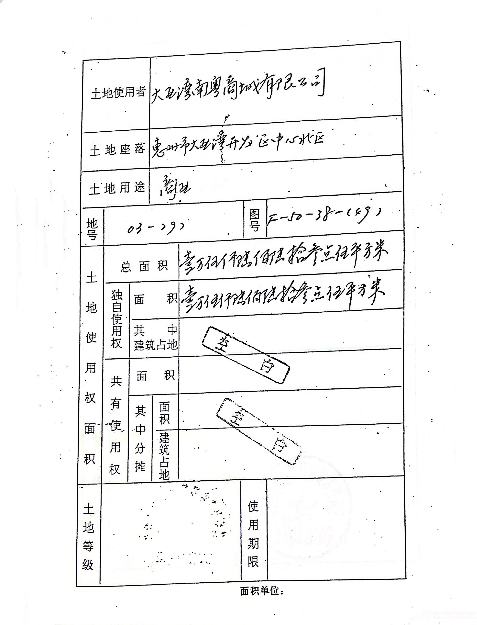 土地使用者 大亚湾南粤商城有限公司
土地座落 惠州市大亚湾开发区中心北区
土地用途 商业
地号 03-
图号 F-50-38-(49)
土地使用权面积
总面积 壹万伍仟陆佰陆拾叁点伍平方米
独自使用权 面积 壹万伍仟陆佰陆拾叁点伍平方米
其中建筑占地
空白
共有使用权 面积
其中分摊 面积
空白
建筑占地
土地等级
使用期限
面积单位: